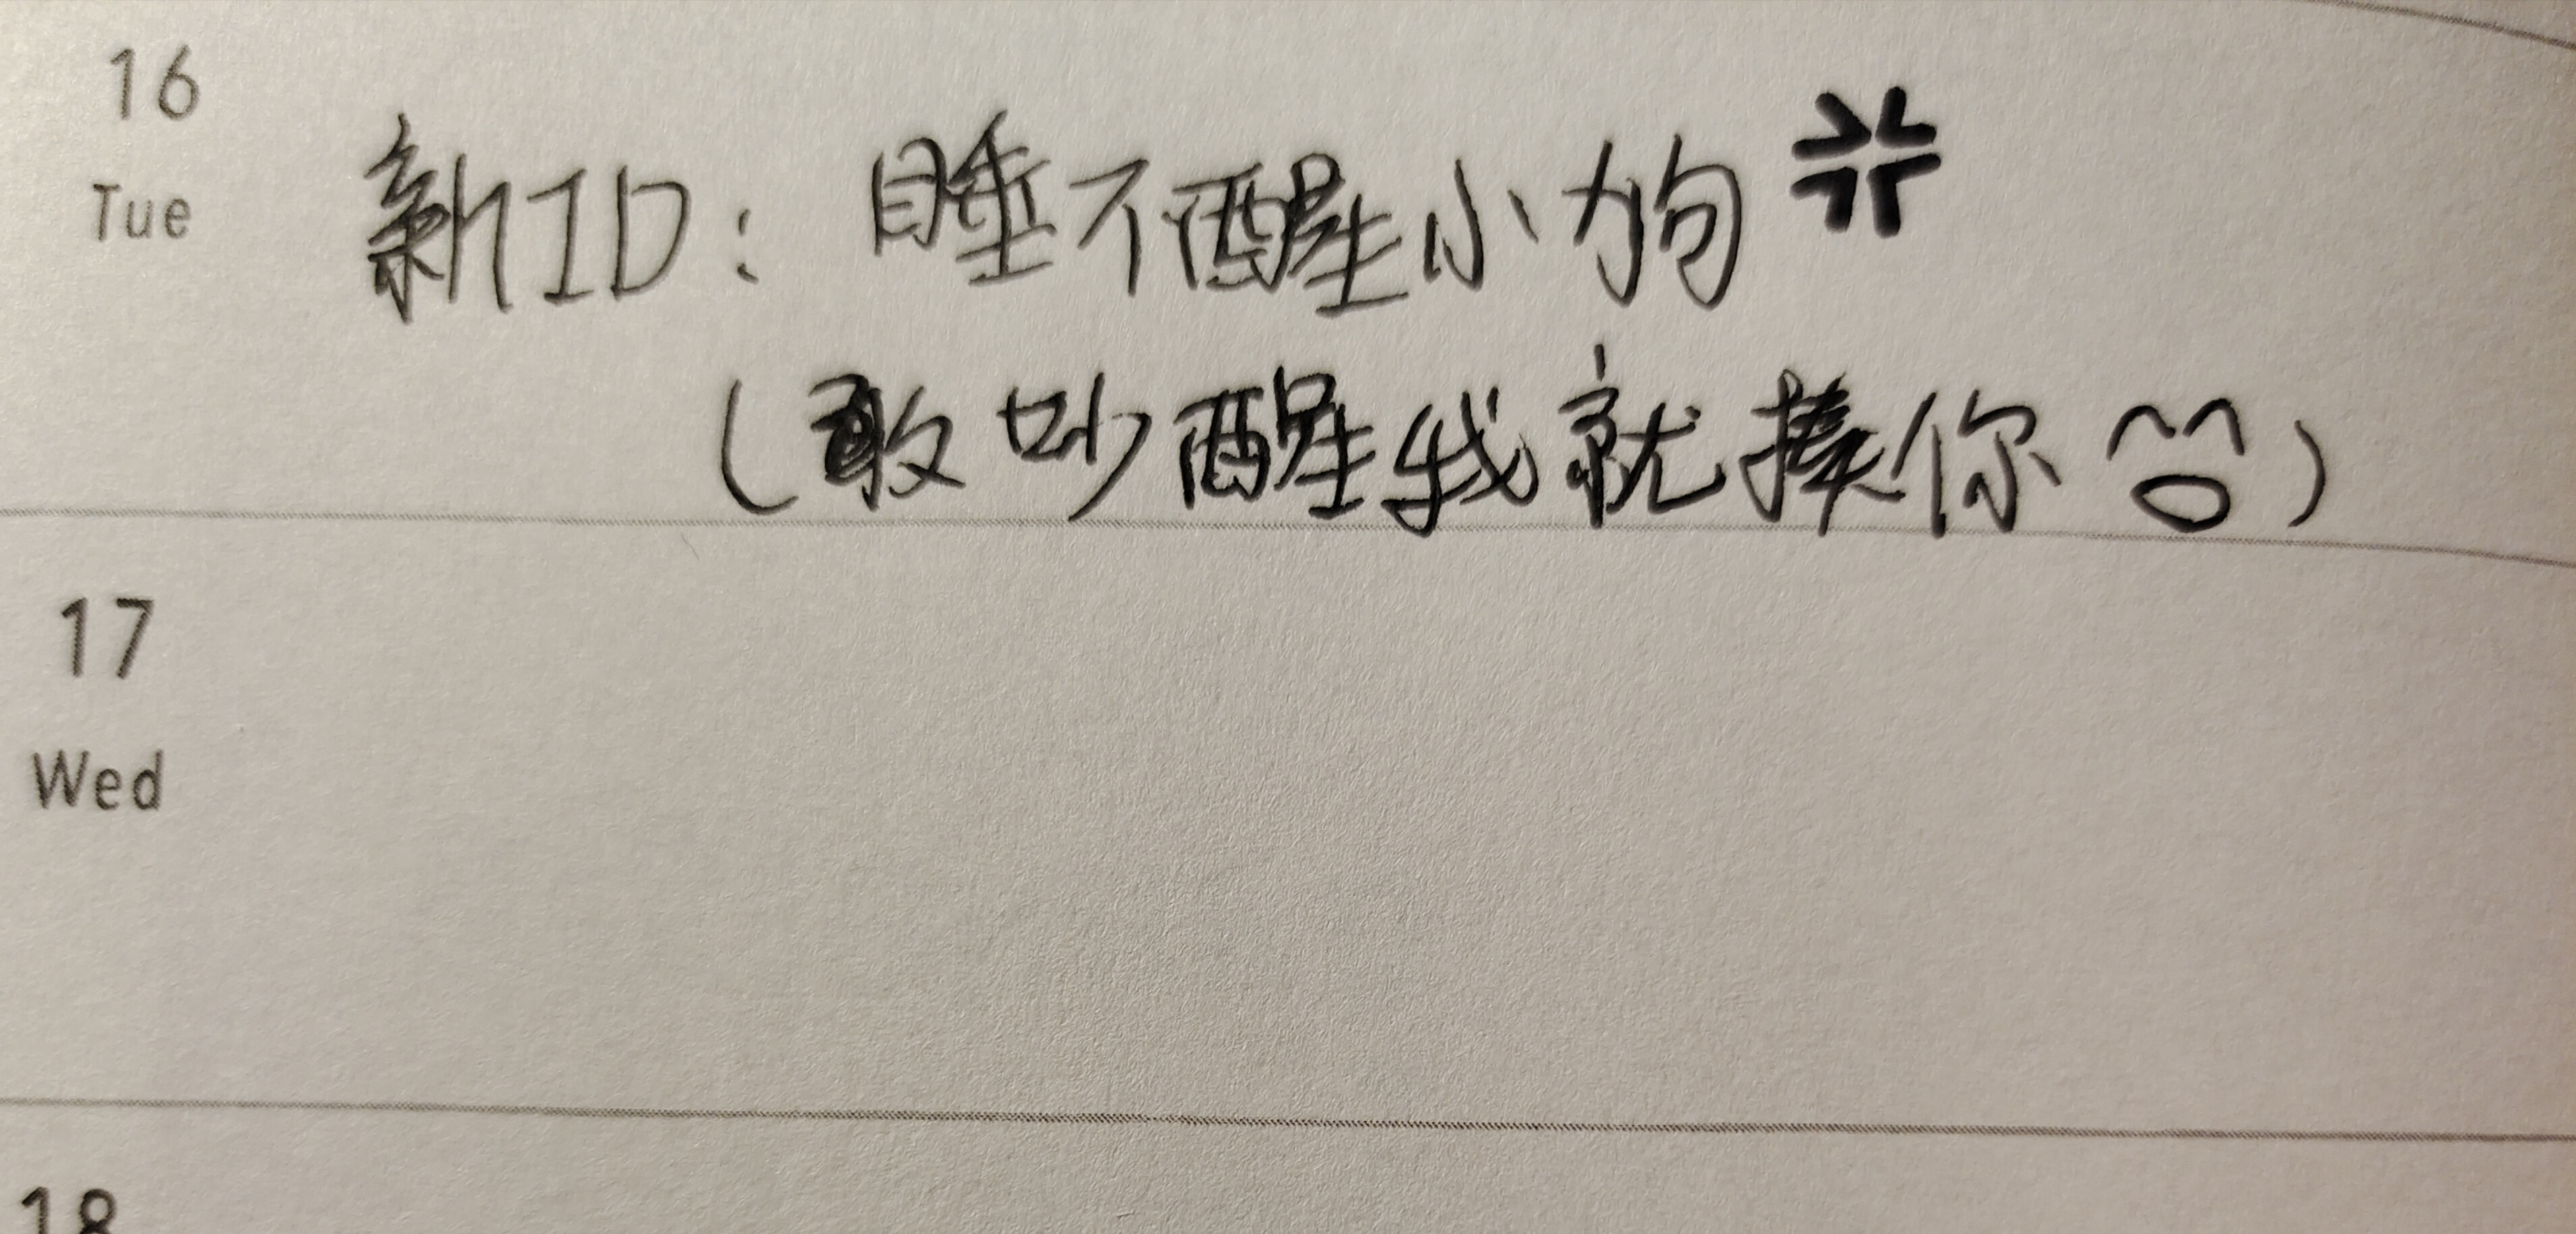 16
Tue
新ID：睡不醒小狗💢
（敢吵醒我就揍你）
17
Wed
18